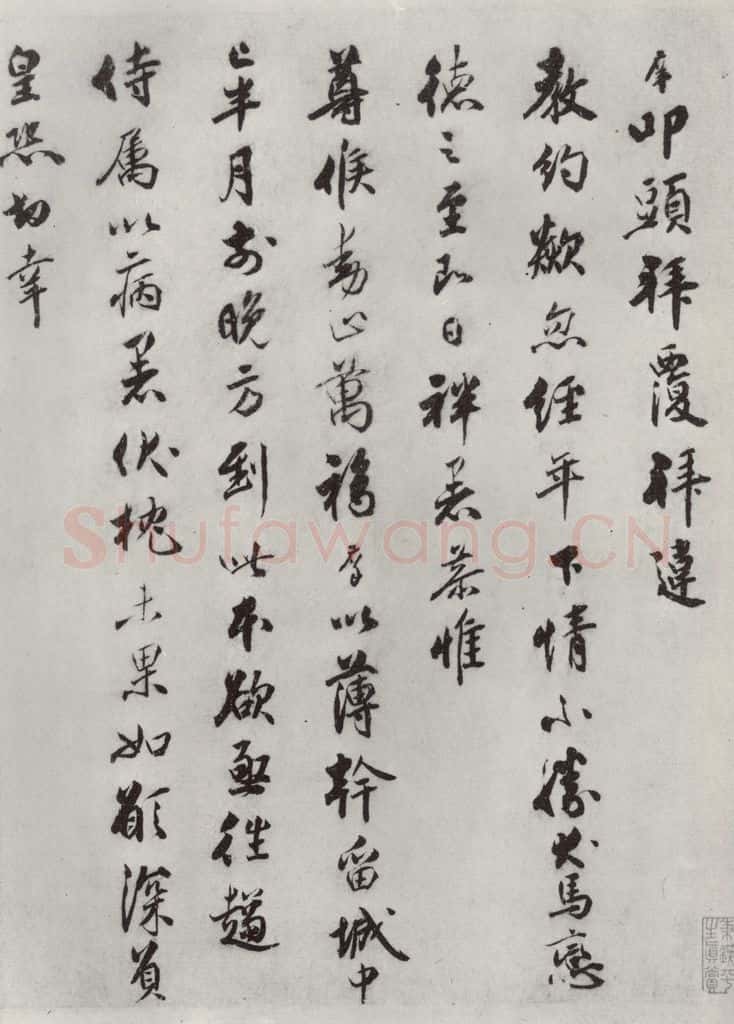 叩頭拜覆拜違
教約歘忽經年下情不勝犬馬戀
德之至即日袢暑恭惟
尊候動止萬福以薄幹留城中
半月前晚方到此本欲亟往趨
侍屬以病暑伏枕未果如願深負
皇恐切幸
Shufawang.CN